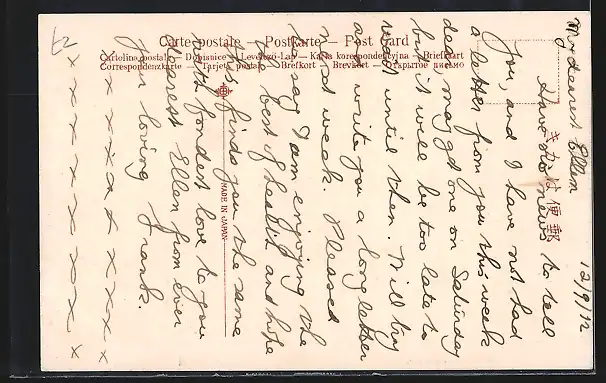 Carte postale — Postkarte — Post card
Cartolina postal — Dopisnice — Levelező-Lap — Karta korespondencyjna — Briefkaart
Correspondenzkarte — Tarjeta postal — Brefkort — Brevkort — Открытое письмо
きかは便郵
MADE IN JAPAN
12/9/12
My dearest Ellen
Have no news to tell
you, and I have not had
a letter from you this week
dear, may get one on Saturday
but it will be too late to
wait until then. Will try
and write you a long letter
next week. Pleased
to say I am enjoying the
the best of health and hope
this finds you the same
with fondest love to you
dearest Ellen from ever
your loving Frank.
x x x x x x x x x x
x x x x x x x x x